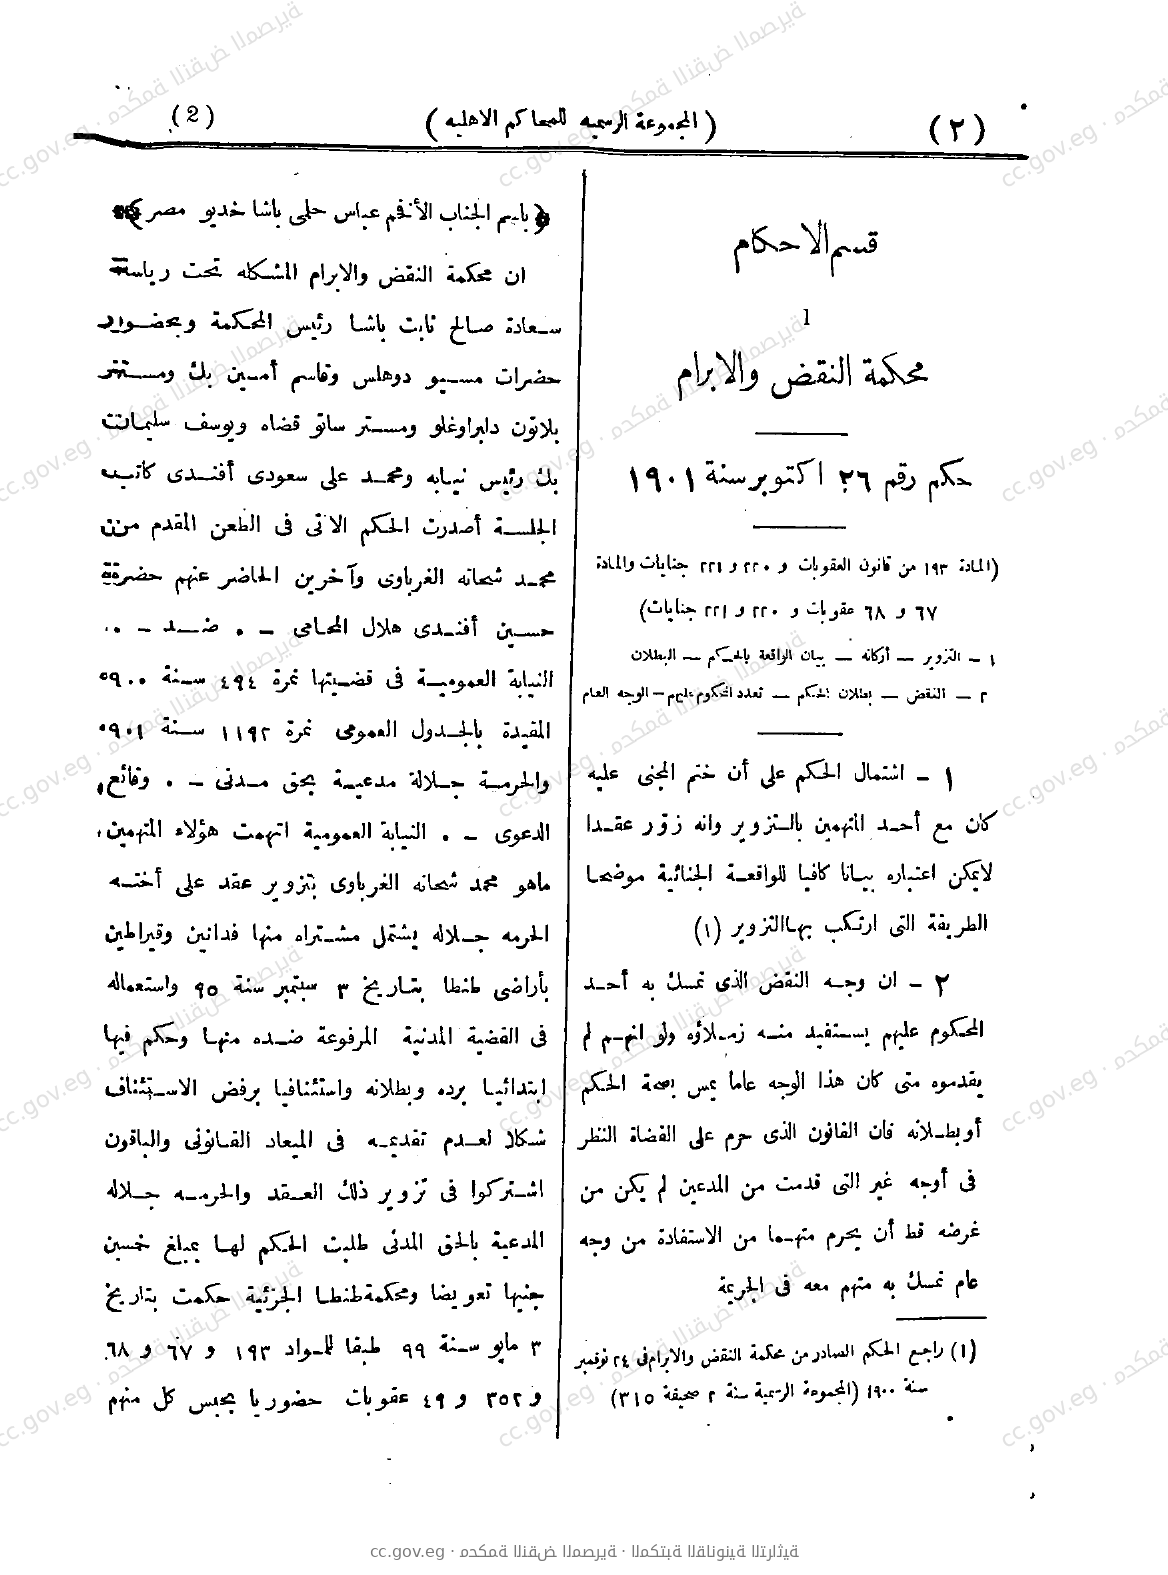 (٢)
(المجموعة الرسمية للمحاكم الاهليه)
(2)
قسم الاحكام
1
محكمة النقض والابرام
حكم رقم ٢٦ اكتوبر سنة ١٩٠١
(المادة ١٩٣ من قانون العقوبات و ٢٢٠ و ٢٢١ جنايات والمادة
٦٧ و ٦٨ عقوبات و ٢٢٠ و ٢٢١ جنايات)
١ – التزوير – أركانه – بيان الواقعة بالحكم – البطلان
٢ – النقض – بطلان الحكم – تعدد المحكوم عليهم – الوجه العام
١ – اشتمال الحكم على أن ختم المجنى عليه
كان مع أحد المتهمين بالتزوير وانه زوّر عقدا
لايمكن اعتباره بيانا كافيا للواقعة الجنائية موضحا
الطريقة التى ارتكب بها التزوير (١)
٢ – ان وجه النقض الذى تمسك به أحد
المحكوم عليهم يستفيد منه زملاؤه ولو انهم لم
يقدموه متى كان هذا الوجه عاما يمس بصحة الحكم
أو بطلانه فان القانون الذى حرم على القضاة النظر
فى أوجه غير التى قدمت من المدعين لم يكن من
غرضه قط أن يحرم متهما من الاستفادة من وجه
عام تمسك به متهم معه فى الجريمة
(١) راجع الحكم الصادر من محكمة النقض والابرام فى ٢٤ نوفمبر
سنة ١٩٠٠ (المجموعة الرسمية سنة ٢ صحيفة ٣١٥)
﴿باسم الجناب الأفخم عباس حلمى باشا خديو مصر﴾
ان محكمة النقض والابرام المشكله تحت رياسة
سعادة صالح ثابت باشا رئيس المحكمة وبحضور
حضرات مسيو دوهلس وقاسم أمين بك ومستر
بلاتون دلبراوغلو ومستر ساتو قضاه ويوسف سليمان
بك رئيس نيابه ومحمد على سعودى أفندى كاتب
الجلسة أصدرت الحكم الاتى فى الطعن المقدم من
محمد شحاته الغرباوى وآخرين الحاضر عنهم حضرة
حسين أفندى هلال المحامى – . ضد – .
النيابة العمومية فى قضيتها نمرة ٤٩٤ سنة ٩٠٠
المقيدة بالجدول العمومى نمرة ١١٩٢ سنة ٩٠١
والحرمة جلالة مدعية بحق مدنى – . وقائع
الدعوى – . النيابة العمومية اتهمت هؤلاء المتهمين
ماهو محمد شحاته الغرباوى بتزوير عقد على أخته
الحرمه جلاله يشتمل مشتراه منها فدانين وقيراطين
بأراضى طنطا بتاريخ ٣ سبتمبر سنة ٩٥ واستعماله
فى القضية المدنية المرفوعة ضده منها وحكم فيها
ابتدائيا برده وبطلانه واستئنافيا برفض الاستئناف
شكلا لعدم تقديمه فى الميعاد القانونى والباقون
اشتركوا فى تزوير ذلك العقد والحرمه جلاله
المدعية بالحق المدنى طلبت الحكم لها بمبلغ خمسين
جنيها تعويضا ومحكمة طنطا الجزئية حكمت بتاريخ
٣ مايو سنة ٩٩ طبقا للمواد ١٩٣ و ٦٧ و ٦٨
و ٣٥٢ و ٤٩ عقوبات حضوريا بحبس كل منهم
cc.gov.eg · محكمة النقض المصرية · المكتبة القانونية التراثية